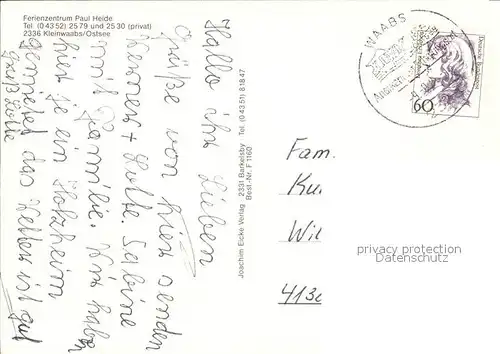 Ferienzentrum Paul Heide
Tel (0 43 52) 25 79 und 25 30 (privat)
2336 Kleinwaabs/Ostsee
Hallo ihr Lieben
Grüße von hier senden
Werner + Lotte. Sabine
mit Familie. Wir haben
hier je ein Holzheim
gemietet das Wetter ist gut
Gruß Lotte
Joachim Eicke Verlag 2331 Barkelsby Tel. (0 43 51) 8 18 47
Best.-Nr. F 1160
WAABS
60
Deutsche Bundespost
Fam.
Ku.
Wil
413
privacy protection
Datenschutz